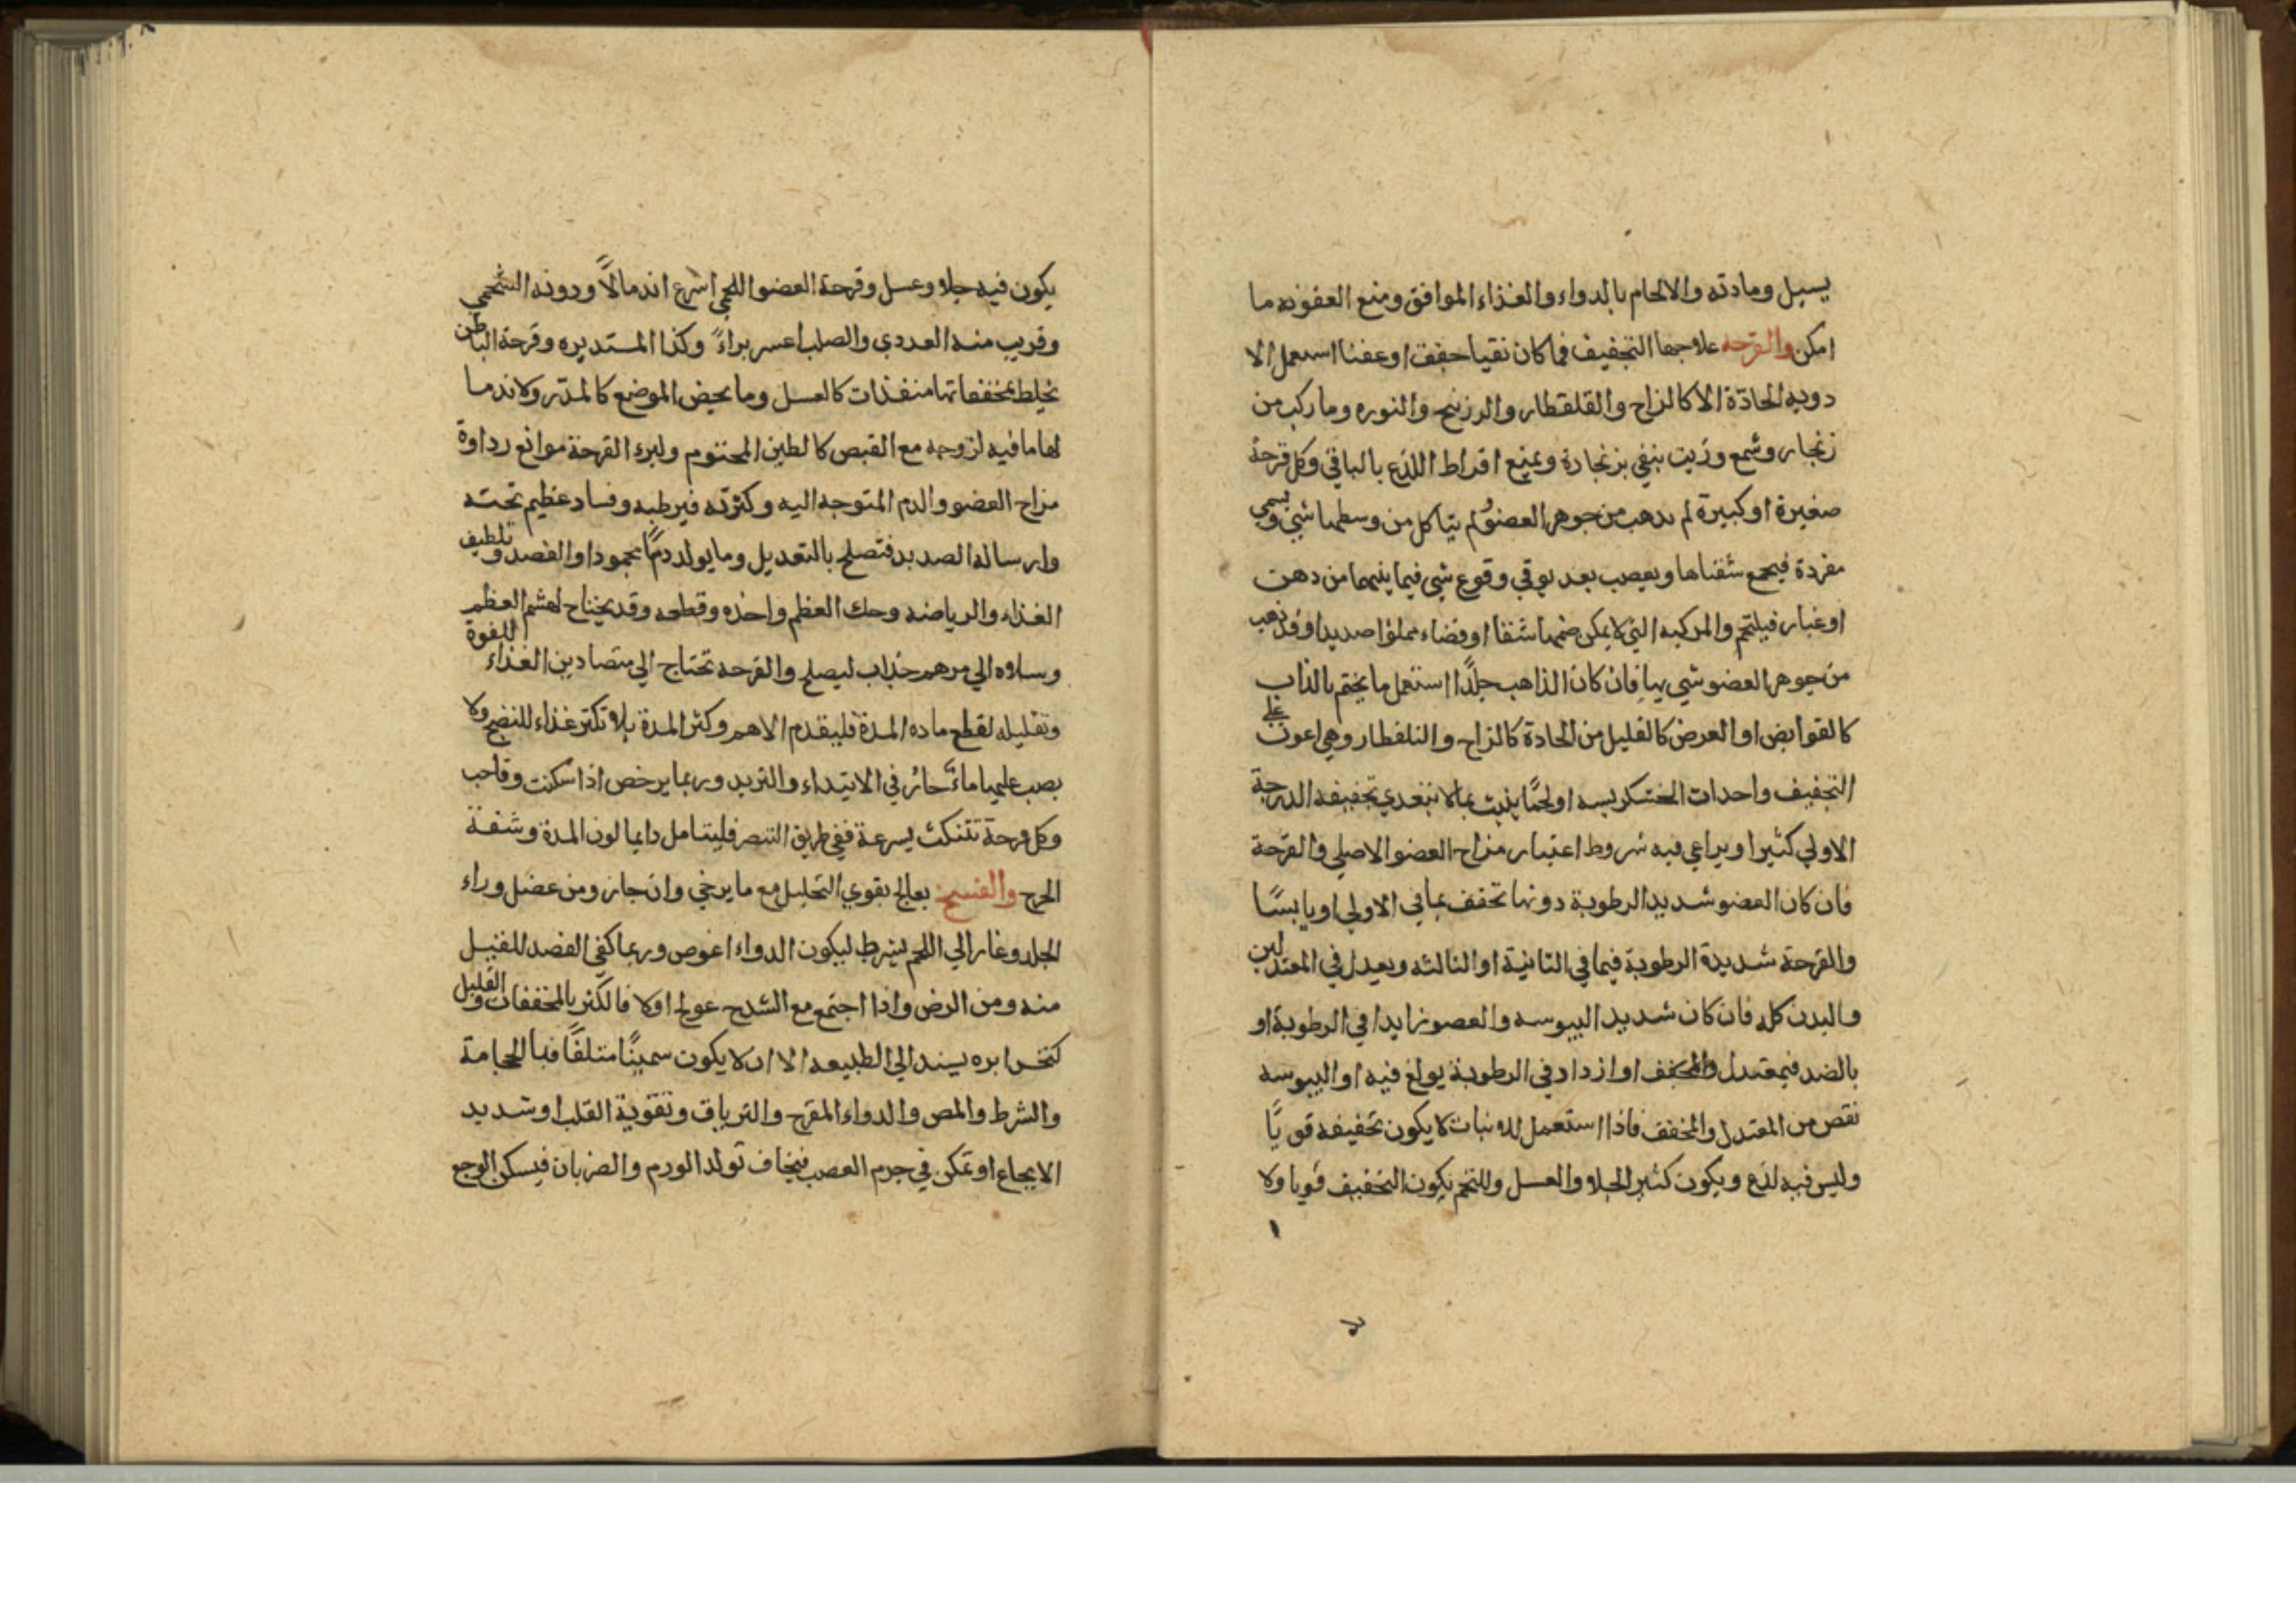 يسيل ومادته والالحام بالدواء والغذاء الموافق ومنع العفونه ما
امكن والقرحه علاجها التجفيف فما كان نقيا جفف اوعفنا استعمل الا
دويه الحادّة الاكالزاج والقلقطار والزرنيخ والنوره وماركب من
زنجار وشمع وزيت ينفي بزنجارة ويمنع افراط اللذع بالباقي وكل قرحة
صغيرة اوكبيرة لم يدهب من جوهر العضو ولم يتاكل من وسطها شي ويسمى
مفردة فيجمع شفتاها ويعصب بعد توقي وقوع شي فيما بينهما من دهن
اوغبار فيلتحم والمركبه التي لايمكن ضمها شقا اوفضاء مملوا صديدا اوقد ذهب
من جوهر العضو شي بها فان كان الذاهب جلدًا استعمل مايختم بالذاب
كالقوابض او العرض كالقليل من الحادة كالزاج والقلقطار وهي اعون على
التجفيف واحدات الخشكريسه اولحمًا ينبت بمالا يتعدي تجفيفه الدرجة
الاولي كثيرا ويراعي فيه شروط اعتبار مزاج العضو الاصلي والقرحة
فان كان العضو شديد الرطوبة دونها تجفف بمافي الاولي اويابسًا
والقرحة شديدة الرطوبة فيما في الثانية او الثالثه ويعدل في المعتدلين
والبدن كله فان كان شديد اليبوسه والعصو زايدا في الرطوبة او
بالضد فبمعتدل والمجفف او ازداد في الرطوبة يولغ فيه او اليبوسه
نقص من المعتدل والمجفف فاذا استعمل للانبات لا يكون تجفيفه قويًّا
وليس فيه لذع ويكون كثير الجلا والغسل وللختم يكون التجفيف قويا ولا
يكون فيه جلا وغسل وقرحة العضو اللحمي اسرع اندمالًا ودونه الشحمي
وقريب منه الغددي والصلب اعسر براءً وكذا المستديره وقرحة الباطن
تخلط بمجففاتها منفذات كالعسل ومايخص الموضع كالمدّر ولاندما
لها مافيه لزوجه مع القبض كالطين المختوم ولبرء القرحة موانع رداوة
مزاج العضو والدم المتوجه اليه وكثرته فيرطبه وفساد عظيم تحته
وارساله الصديد فتصلح بالتعديل ومايولد دمًا محمودا والفصد وتلطيف
الغذاء والرياضه وحك العظم واخذه وقطعه وقد يحتاج لهشم العظم
وسلاه الي مرهم جذاب ليصلح والقرحه تحتاج الي متضادين الغذاء للقوة
وتقليله لقطع ماده المدة فليقدم الاهم وكثر المدة بلا تكثر غذاء للنضج ولا
يصب عليها ماءً حار في الابتداء والتريد وربما يرخص اذا سكنت وقاحب
وكل قرحة تتنكث بسرعة ففي طريق التنصر فليتامل دايما لون المدة وشفة
الجرح والفسخ يعالج بقوي التحليل مع مايرخي وان جاز ومن عضل وراء
الجلد وغار الي اللحم يشرط ليكون الدواء اغوص وربما كفي الفصد للقليل
منه ومن الرض واذا اجتمع مع الشدخ عولج اولا فالكثير بالمجففات والقليل
كنخس ابره يسند الي الطبيعه الا ان لايكون سمينًا متلفًا فبالحجامة
والشرط والمص والدواء المقرح والترياق وتقوية القلب اوشديد
الايجاع اوتمكن في جرم العصب فيخاف تولد الورم والضربان فيسكن الوجع